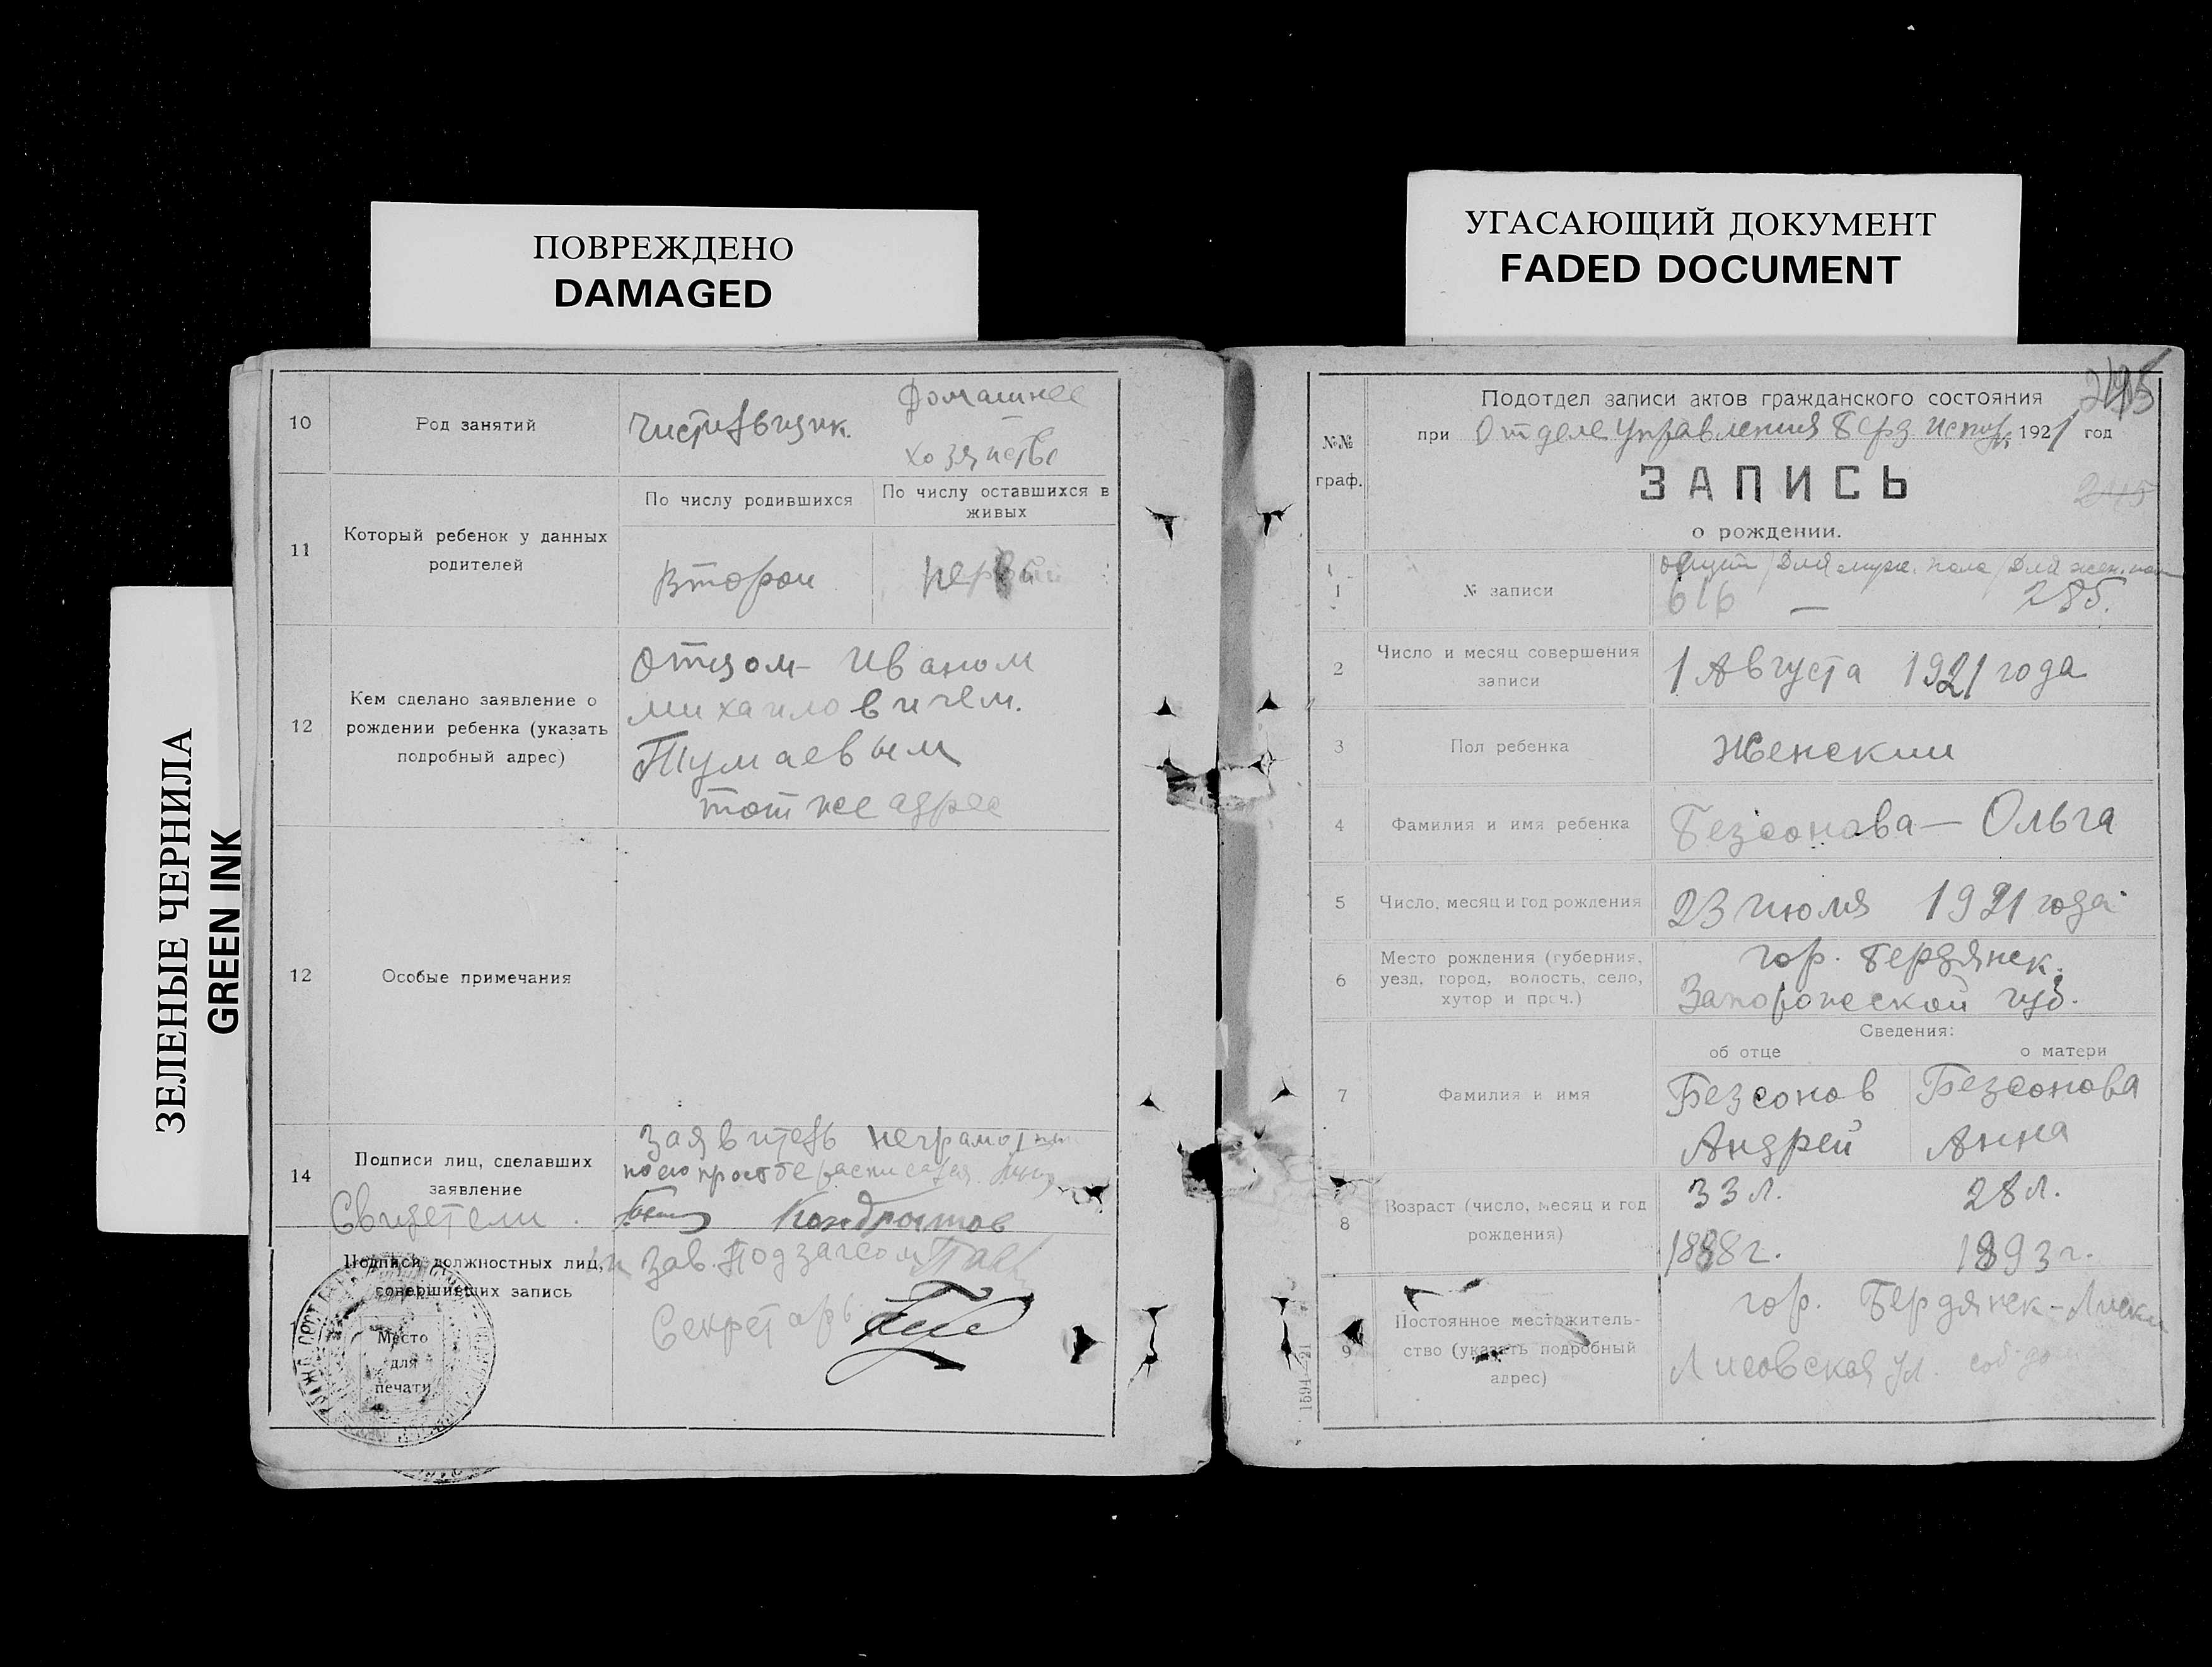 ПОВРЕЖДЕНО
DAMAGED
УГАСАЮЩИЙ ДОКУМЕНТ
FADED DOCUMENT
ЗЕЛЕНЫЕ ЧЕРНИЛА
GREEN INK
10
Род занятий
Домашнее
хозяйство
11
Который ребенок у данных
родителей
По числу родившихся
По числу оставшихся в
живых
второй
первый
12
Кем сделано заявление о
рождении ребенка (указать
подробный адрес)
Отцом Иваном
Михайловичем
Тумаевым
тот же адрес
12
Особые примечания
14
Подписи лиц, сделавших
заявление
Свидетели.
Заявитель неграмотный
по его просьбе расписался
Кондратов
Подписи должностных лиц,
совершивших запись
Зав. Подзагсом
Секретарь
Место
для
печати
№№
граф.
Подотдел записи актов гражданского состояния
245
при Отделе Управления Берд 1921 год
ЗАПИСЬ
245
о рождении.
1
№ записи
общий / Для муж. пола / Для жен.
616 — 285.
2
Число и месяц совершения
записи
1 Августа 1921 года
3
Пол ребенка
Женский
4
Фамилия и имя ребенка
Безсонова — Ольга
5
Число, месяц и год рождения
23 июля 1921 года
6
Место рождения (губерния,
уезд, город, волость, село,
хутор и проч.)
гор. Бердянск.
Запорожской губ.
Сведения:
об отце
о матери
7
Фамилия и имя
Безсонов
Андрей
Безсонова
Анна
8
Возраст (число, месяц и год
рождения)
33 л.
1888 г.
28 л.
1893 г.
9
Постоянное местожитель-
ство (указать подробный
адрес)
гор. Бердянск - Лиски
Лисовская ул. соб.
1594—21